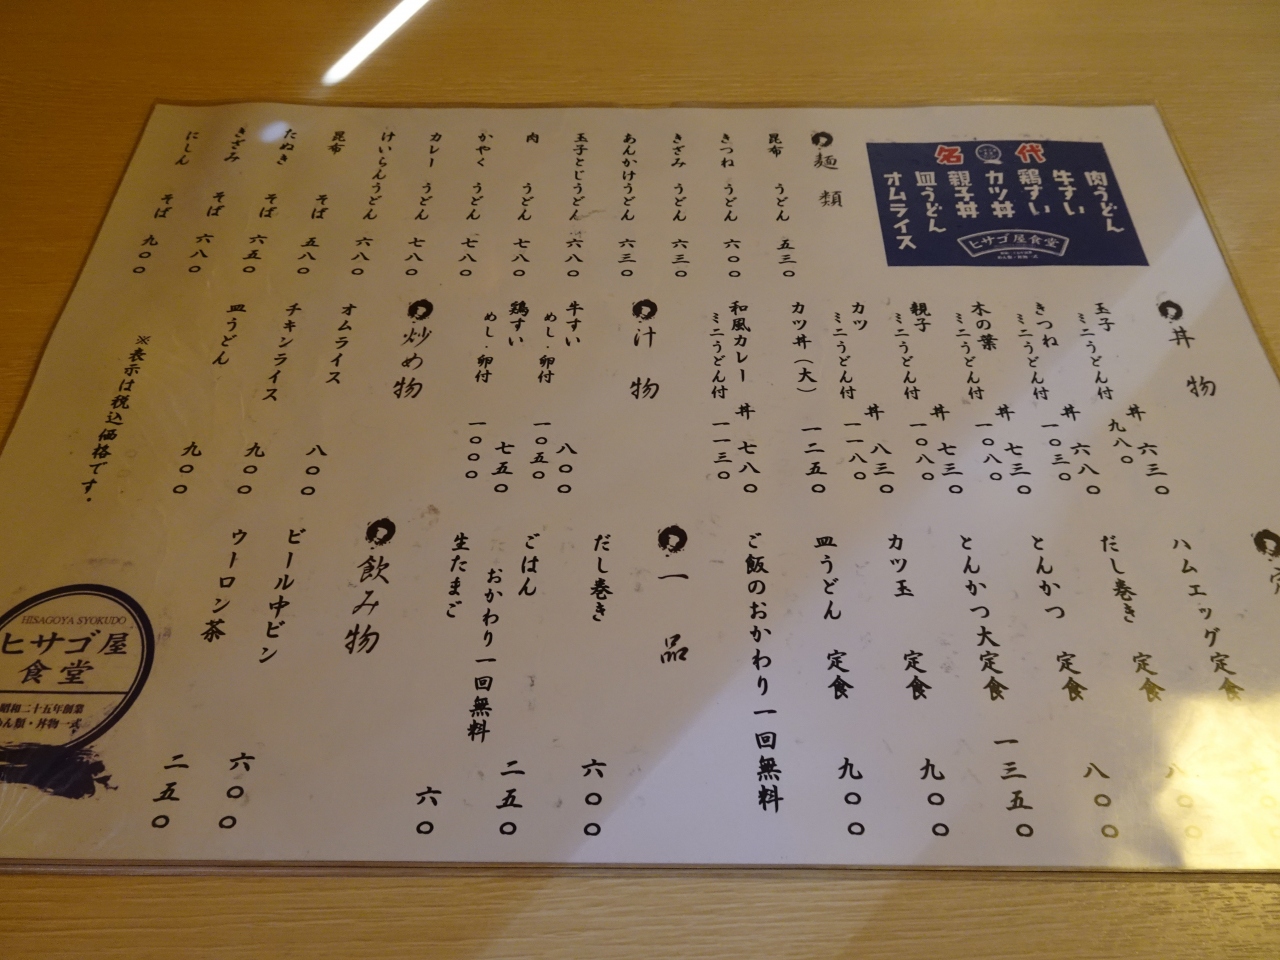 名代
肉うどん
牛すい
鶏すい
カツ丼
親子丼
皿うどん
オムライス
ヒサゴ屋食堂
麺類
昆布 うどん 五三〇
きつね うどん 六〇〇
きざみ うどん 六三〇
あんかけうどん 六三〇
玉子とじうどん 六八〇
肉 うどん 七八〇
かやく うどん 七八〇
カレー うどん 七八〇
けいらんうどん 六八〇
昆布 そば 五八〇
たぬき そば 六五〇
きざみ そば 六八〇
にしん そば 九〇〇
丼物
玉子 丼 六三〇
ミニうどん付 九八〇
きつね 丼 六八〇
ミニうどん付 一〇三〇
木の葉 丼 七三〇
ミニうどん付 一〇八〇
親子 丼 七三〇
ミニうどん付 一〇八〇
カツ 丼 八三〇
ミニうどん付 一一八〇
カツ丼(大) 一二五〇
和風カレー 丼 七八〇
ミニうどん付 一一三〇
汁物
牛すい 八〇〇
めし・卵付 一〇五〇
鶏すい 七五〇
めし・卵付 一〇〇〇
炒め物
オムライス 八〇〇
チキンライス 九〇〇
皿うどん 九〇〇
※表示は税込価格です。
ハムエッグ定食
だし巻き 定食 八〇〇
とんかつ 定食 八〇〇
とんかつ大定食 一三五〇
カツ玉 定食 九〇〇
皿うどん 定食 九〇〇
ご飯のおかわり一回無料
一品
だし巻き 六〇〇
ごはん 二五〇
おかわり一回無料
生たまご 六〇
飲み物
ビール中ビン 六〇〇
ウーロン茶 二五〇
HISAGOYA SYOKUDO
ヒサゴ屋
食堂
昭和二十五年創業
めん類・丼物一式